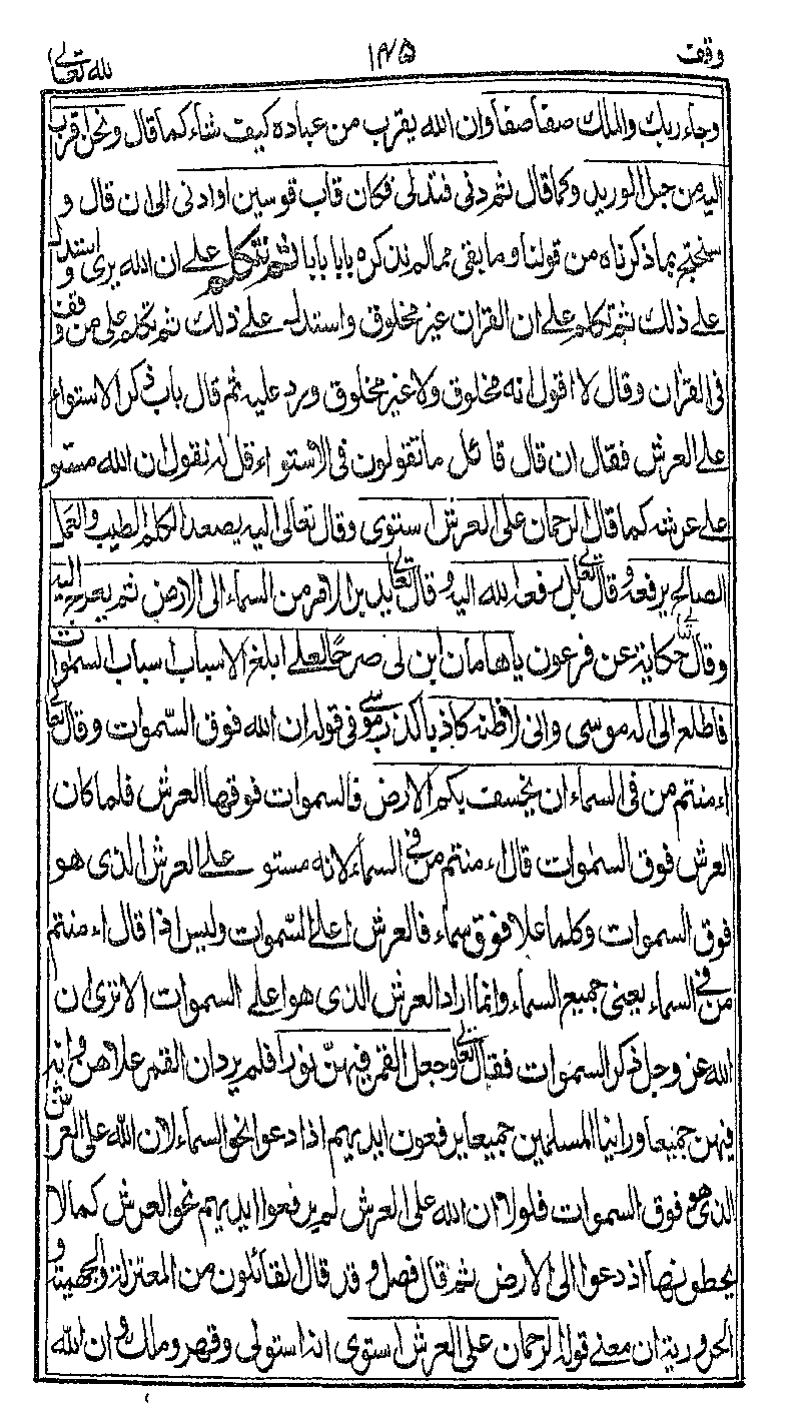 وقف ١٤٥ لله تعالى
وجاء ربك والملك صفا صفا وان الله يقرب من عباده كيف شاء كما قال ونحن اقرب
اليه من حبل الوريد وكما قال ثم دنى فتدلى فكان قاب قوسين او ادنى الى ان قال و
سنحتج بما ذكرناه من قولنا وما بقى مما لم نذكره بابا بابا ثم تكلم على ان الله يرى و استدل
على ذلك ثم تكلم على ان القران غير مخلوق واستدل على ذلك ثم تكلم على من وقف
فى القران وقال لا اقول انه مخلوق ولا غير مخلوق ورد عليه ثم قال باب ذكر الاستواء
على العرش فقال ان قال قائل ما تقولون فى الاستواء قل له نقول ان الله مستو
على عرشه كما قال الرحمان على العرش استوى وقال تعالى اليه يصعد الكلم الطيب والعمل
الصالح يرفعه وقال تعالى بل رفعه الله اليه وقال تعالى يدبر الامر من السماء الى الارض ثم يعرج اليه
وقال تعالى حكاية عن فرعون ياهامان ابن لى صرحًا لعلى ابلغ الاسباب اسباب السموات
فاطلع الى اله موسى وانى لاظنه كاذبا كذب موسى فى قوله ان الله فوق السّموات وقال تعالى
اء منتم من فى السماء ان يخسف بكم الارض فالسموات فوقها العرش فلما كان
العرش فوق السموات قال اء منتم من فى السماء لانه مستو على العرش الذى هو
فوق السموات وكلما علا فوق سماء فالعرش اعلى السّموات وليس اذا قال اء منتم
من فى السماء يعنى جميع السماء وانما اراد العرش الذى هو اعلى السموات الا ترى ان
الله عز وجل ذكر السموات فقال تعالى وجعل القمر فيهنّ نورا فلم يرد ان القمر علاهن وانه
فيهن جميعا ورأينا المسلمين جميعا يرفعون ايديهم اذا دعوا نحو السماء لان الله على العرش
الذى هو فوق السموات فلولا ان الله على العرش لم يرفعوا ايديهم نحو العرش كما لا
يحطونها اذ دعوا الى الارض ثم قال فصل وقد قال القائلون من المعتزلة والجهمية و
الحرورية ان معنى قوله الرحمان على العرش استوى انه استولى وقهر وملك وان الله